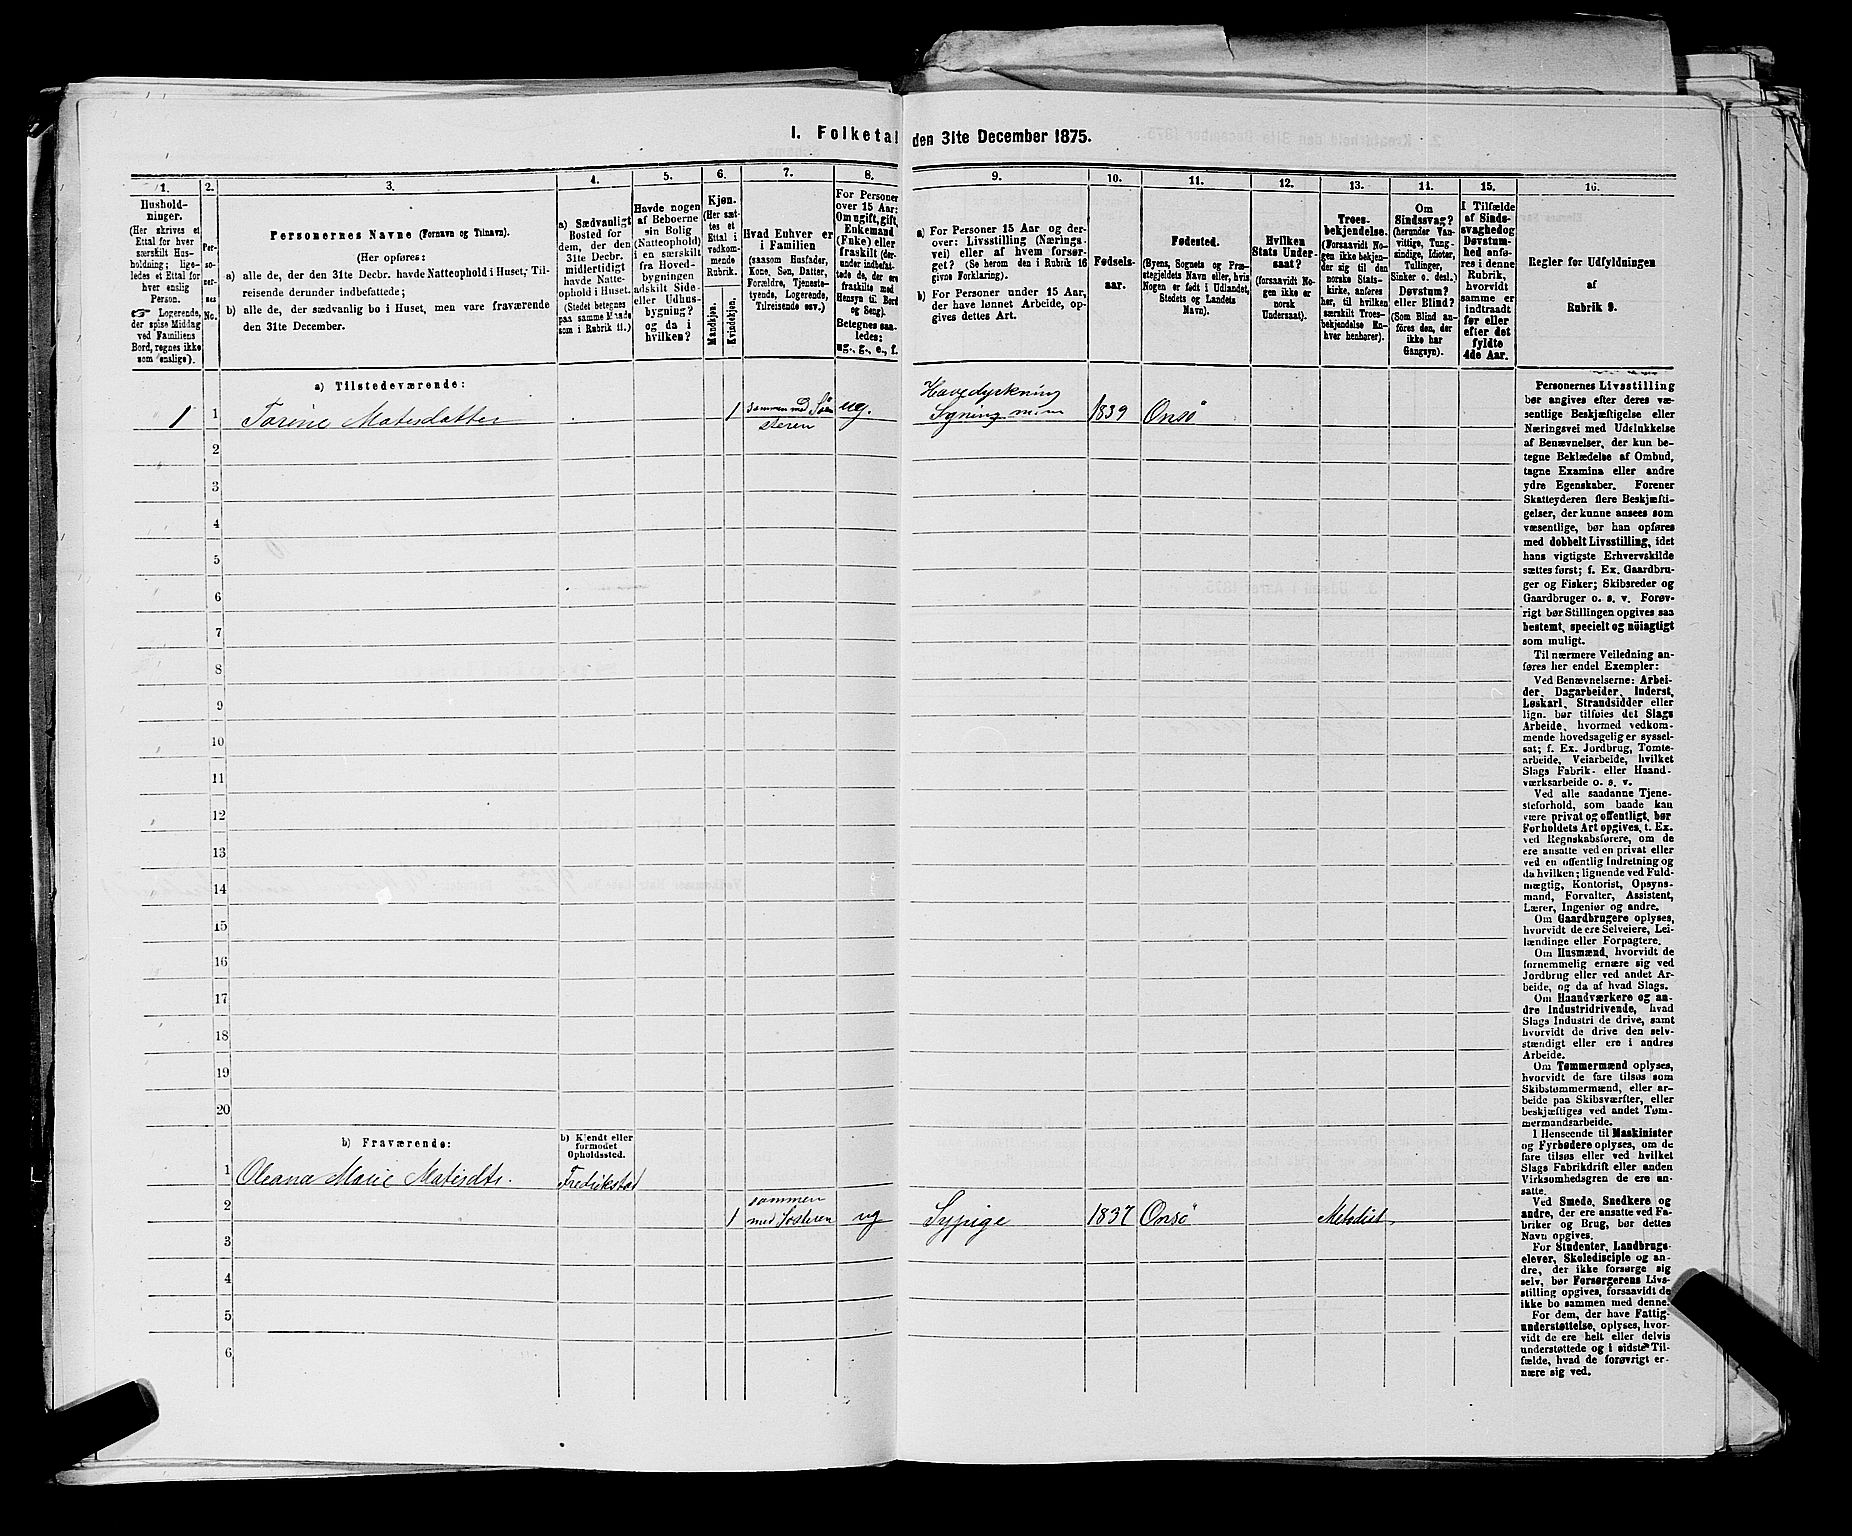 I. Folketal den 31te December 1875.
1. 2. 3. 4. 5. 6. 7. 8. 9. 10. 11. 12. 13. 14. 15. 16.
Hushold-
ninger.
(Her skrives et
Ettal for hver
særskilt Hus-
holdning; lige-
ledes et Ettal for
hver enslig
Person.
☞ Logerende,
der spise Middag
ved Familiens
Bord, regnes ikke
som enslige).
Per-
so-
ner-
nes
No.
Personernes Navne (Fornavn og Tilnavn).
(Her opføres:
a) alle de, der den 31te Decbr. havde Natteophold i Huset, Til-
reisende derunder indbefattede;
b) alle de, der sædvanlig bo i Huset, men vare fraværende
den 31te December.
a) Sædvanligt
Bosted for
dem, der den
31te Decbr.
midlertidigt
havde Natte-
ophold i Huset.
(Stedet betegnes
paa samme Maade
som i Rubrik 11.)
Havde nogen
af Beboerne
sin Bolig
(Natteophold)
i en særskilt
fra Hoved-
bygningen
adskilt Side-
eller Udhus-
bygning?
og da i
hvilken?
Kjøn.
(Her sæt-
tes et
Ettal i
vedkom-
mende
Rubrik.
Mandkjøn.
Kvindekjøn.
Hvad Enhver er
i Familien
(saasom Husfader,
Kone, Søn, Datter,
Forældre, Tjeneste-
tyende, Logerende,
Tilreisende osv.)
For Personer
over 15 Aar:
Om ugift, gift,
Enkemand
(Enke) eller
fraskilt (der-
under indbefat-
tede de, der ere
fraskilte med
Hensyn til Bord
og Seng).
Betegnes saa-
ledes:
ug., g., e., f.
a) For Personer 15 Aar og der-
over: Livsstilling (Nærings-
vei) eller af hvem forsør-
get? (Se herom den i Rubrik 16
givne Forklaring).
b) For Personer under 15 Aar,
der have lønnet Arbeide, op-
gives dettes Art.
Fødsels-
aar.
Fødested.
(Byens, Sognets og Præ-
stegjeldets Navn eller, hvis
Nogen er født i Udlandet,
Stedets og Landets
Navn).
Hvilken
Stats Under-
saat?
(forsaavidt No-
gen ikke er
norsk
Undersaat).
Troes-
bekjendelse.
(Forsaavidt No-
gen ikke bekjen-
der sig til den
norske Stats-
kirke, anføres
her, til hvilken
særskilt Troes-
bekjendelse En-
hver henhører).
Om
Sindssvag?
(herunder Van-
vittige, Tung-
sindige, Idioter,
Tullinger,
Sinker o. desl.)
Døvstum?
eller Blind?
(Som Blind an-
føres den, der
ikke har
Gangsyn).
I Tilfælde
af Sinds-
svaghed og
Døvstum-
hed anfø-
res i denne
Rubrik,
hvorvidt
samme er
indtraadt
før eller
efter det
fyldte
4de Aar.
Regler for Udfyldningen
af
Rubrik 9.
a) Tilstedeværende:
1 1 Torine Matisdatter 1 sammen med Søsteren ug. Havedyrkning Syning 1839 Onsö
2
3
4
5
6
7
8
9
10
11
12
13
14
15
16
17
18
19
20
b) Fraværende:
b) Kjendt eller
formodet
Opholdssted.
1 Oleana Marie Matisdtr. Fredrikstad
2 1 sammen med Søsteren ug Sypige 1837 Onsö Metodist
3
4
5
6
Personernes Livsstilling
bør angives efter deres væ-
sentlige Beskjæftigelse eller
Næringsvei med Udelukkelse
af Benævnelser, der kun be-
tegne Beklædelse af Ombud,
tagne Examina eller andre
ydre Egenskaber. Forener
Skatteyderen flere Beskjæfti-
gelser, der kunne ansees som
væsentlige, bør han opføres
med dobbelt Livsstilling, idet
hans vigtigste Erhvervskilde
sættes først; f. Ex. Gaardbru-
ger og Fisker; Skibsreder og
Gaardbruger o. s. v. Forøv-
rigt bør Stillingen opgives saa
bestemt, specielt og nöiagtigt
som muligt.
Til nærmere Veiledning an-
føres her endel Exempler:
Ved Benævnelserne: Arbei-
der, Dagarbeider, Inderst,
Løskarl, Strandsidder eller
lign. bør tilføies det Slags
Arbeide, hvormed vedkom-
mende hovedsagelig er syssel-
sat; f. Ex. Jordbrug, Tomte-
arbeide, Veiarbeide, hvilket
Slags Fabrik- eller Haand-
værksarbeide o. s. v.
Ved alle saadanne Tjene-
steforhold, som baade kan
være privat og offentligt, bør
Forholdets Art opgives, t. Ex.
ved Regnskabsførere, om de
ere ansatte ved en privat eller
ved en offentlig Indretning og
da hvilken; lignende ved Fuld-
mægtig, Kontorist, Opsyns-
mand, Forvalter, Assistent,
Lærer, Ingeniør og andre.
Om Gaardbrugere oplyses,
hvorvidt de ere Selveiere, Lei-
lændinge eller Forpagtere.
Om Husmænd, hvorvidt de
fornemmelig ernære sig ved
Jordbrug eller ved andet Ar-
beide, og da af hvad Slags.
Om Haandværkere og an-
dre Industridrivende, hvad
Slags Industri de drive, samt
hvorvidt de drive den selv-
stændigt eller ere i andres
Arbeide.
Om Tømmermænd oplyses,
hvorvidt de fare tilsøs som
Skibstømmermænd, eller ar-
beide paa Skibsværfter, eller
beskjæftiges ved andet Tøm-
mermandsarbeide.
I Henseende til Maskinister
og Fyrbødere oplyses, om de
fare tilsøs eller ved hvilket
Slags Fabrikdrift eller anden
Virksomhedsgren de ere an-
satte.
Ved Smede, Snedkere og
andre, der ere ansatte ved Fa-
briker og Brug, bør dettes
Navn opgives.
For Studenter, Landbrugs-
elever, Skoledisciple og an-
dre, der ikke forsørge sig
selv, bør Forsørgerens Livs-
stilling opgives, forsaavidt de
ikke bo sammen med denne.
For dem, der have Fattig-
understøttelse, oplyses, hvor-
vidt de ere helt eller delvis
understøttede og i sidste Til-
fælde, hvad de forøvrigt er-
nære sig ved.